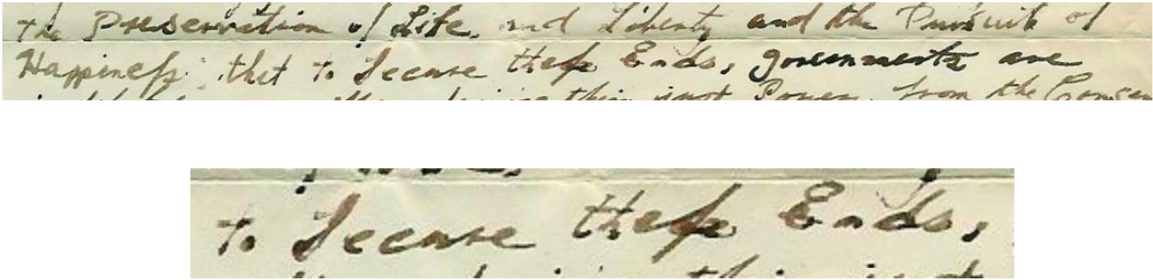 the Preservation of Life, and Liberty and the Pursuit of
Happineſs; that to Secure theſe Ends, governments are
just Powers from the Consen
to Secure theſe Ends,